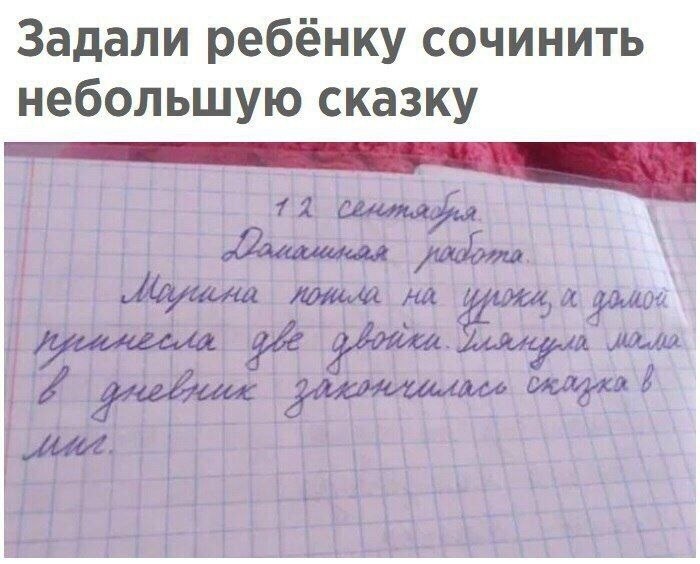 Задали ребёнку сочинить
небольшую сказку
12 сентября
Домашная работа.
Марина пошла на уроки, а домой
принесла две двойки. Глянула мама
в дневник закончилась сказка в
миг.